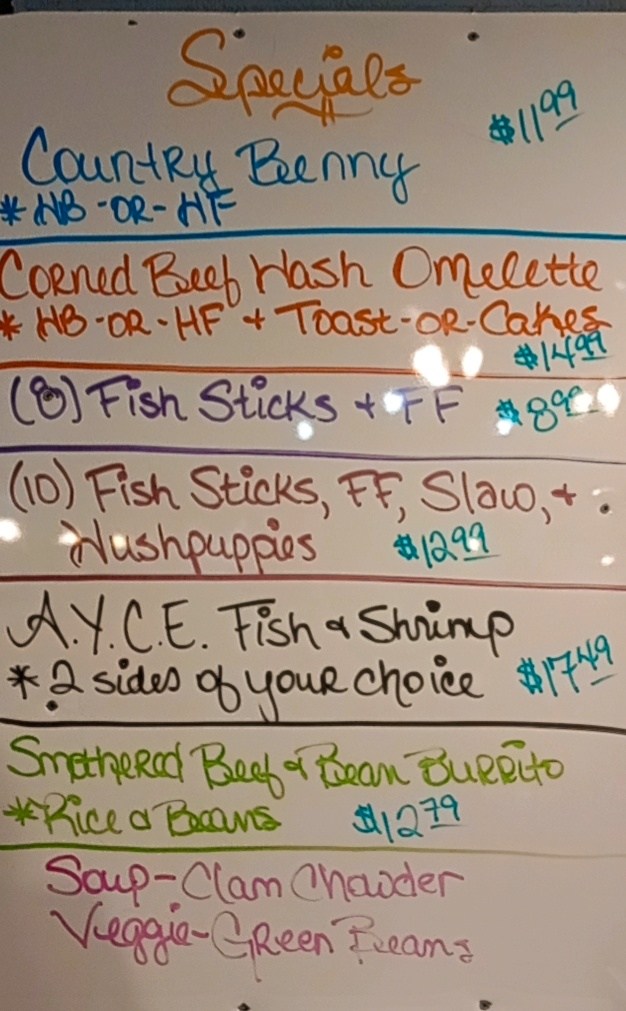 Specials
Country Benny $11.99
* HB -OR- HF
Corned Beef Hash Omelette
* HB -OR- HF + Toast -OR- Cakes
$14.99
(8) Fish Sticks + FF $8.99
(10) Fish Sticks, FF, Slaw, +
Hushpuppies $12.99
A.Y.C.E. Fish & Shrimp
* 2 sides of your choice $17.49
Smothered Beef & Bean Burrito
* Rice & Beans $12.79
Soup - Clam Chowder
Veggie - Green Beans